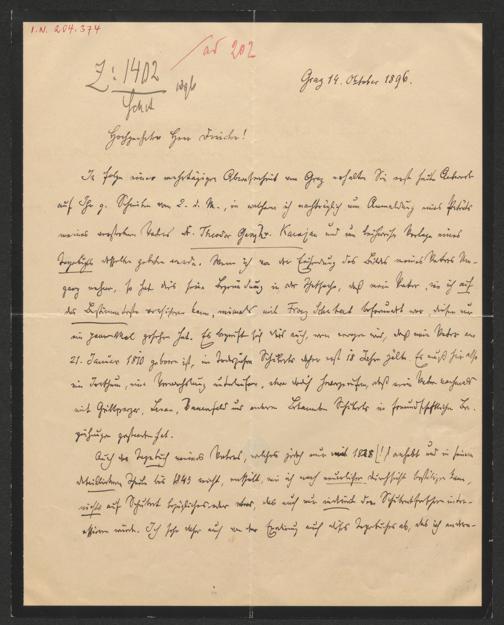 I.N. 204.374
ad 202
Z: 1402
Graz 14. October 1896.
Hochgeehrter Herr Director!
In Folge einer mehrtägigen Abwesenheit von Graz erhalten Sie erst heute Antwort
auf Ihr g. Schreiben vom 2. d. M., in welchem ich nachträglich um Anmeldung eines Porträts
meines verstorbenen Vaters Dr. Theodor Georg v. Karajan und um leihweise Vorlage eines
Tagebuchs desselben gebeten werde. Wenn ich von der Einsendung des Bildes meines Vaters Um-
gang nehme, so hat dies seine Begründung in der Thatsache, daß mein Vater, wie ich auf
das Bestimmteste versichern kann, niemals mit Franz Schubert befreundet war, diesen nur
ein paarmal gesehen hat. Es begreift sich dies auch, wenn erwogen wird, daß mein Vater am
21. Januar 1810 geboren ist, im Todesjahre Schuberts daher erst 18 Jahre zählte. Es muß hier also
ein Irrthum, eine Verwechslung unterlaufen, eben dadurch hervorgerufen, daß mein Vater nachmals
mit Grillparzer, Lenau, Bauernfeld und anderen Bekannten Schuberts in freundschaftlichen Be-
ziehungen gestanden hat.
Auch das Tagebuch meines Vaters, welches jedoch nur mit 1828 (!) anhebt und in seinem
bis 1843 reicht, enthält, wie ich nach neuerlicher Durchsicht bestätigen kann,
nichts auf Schubert bezügliches oder etwas, das auch nur indirect den Schubertforscher inter-
essiren würde. Ich sehe daher auch von der Einsendung auch dieses Tagebuches ab, das ich andern-